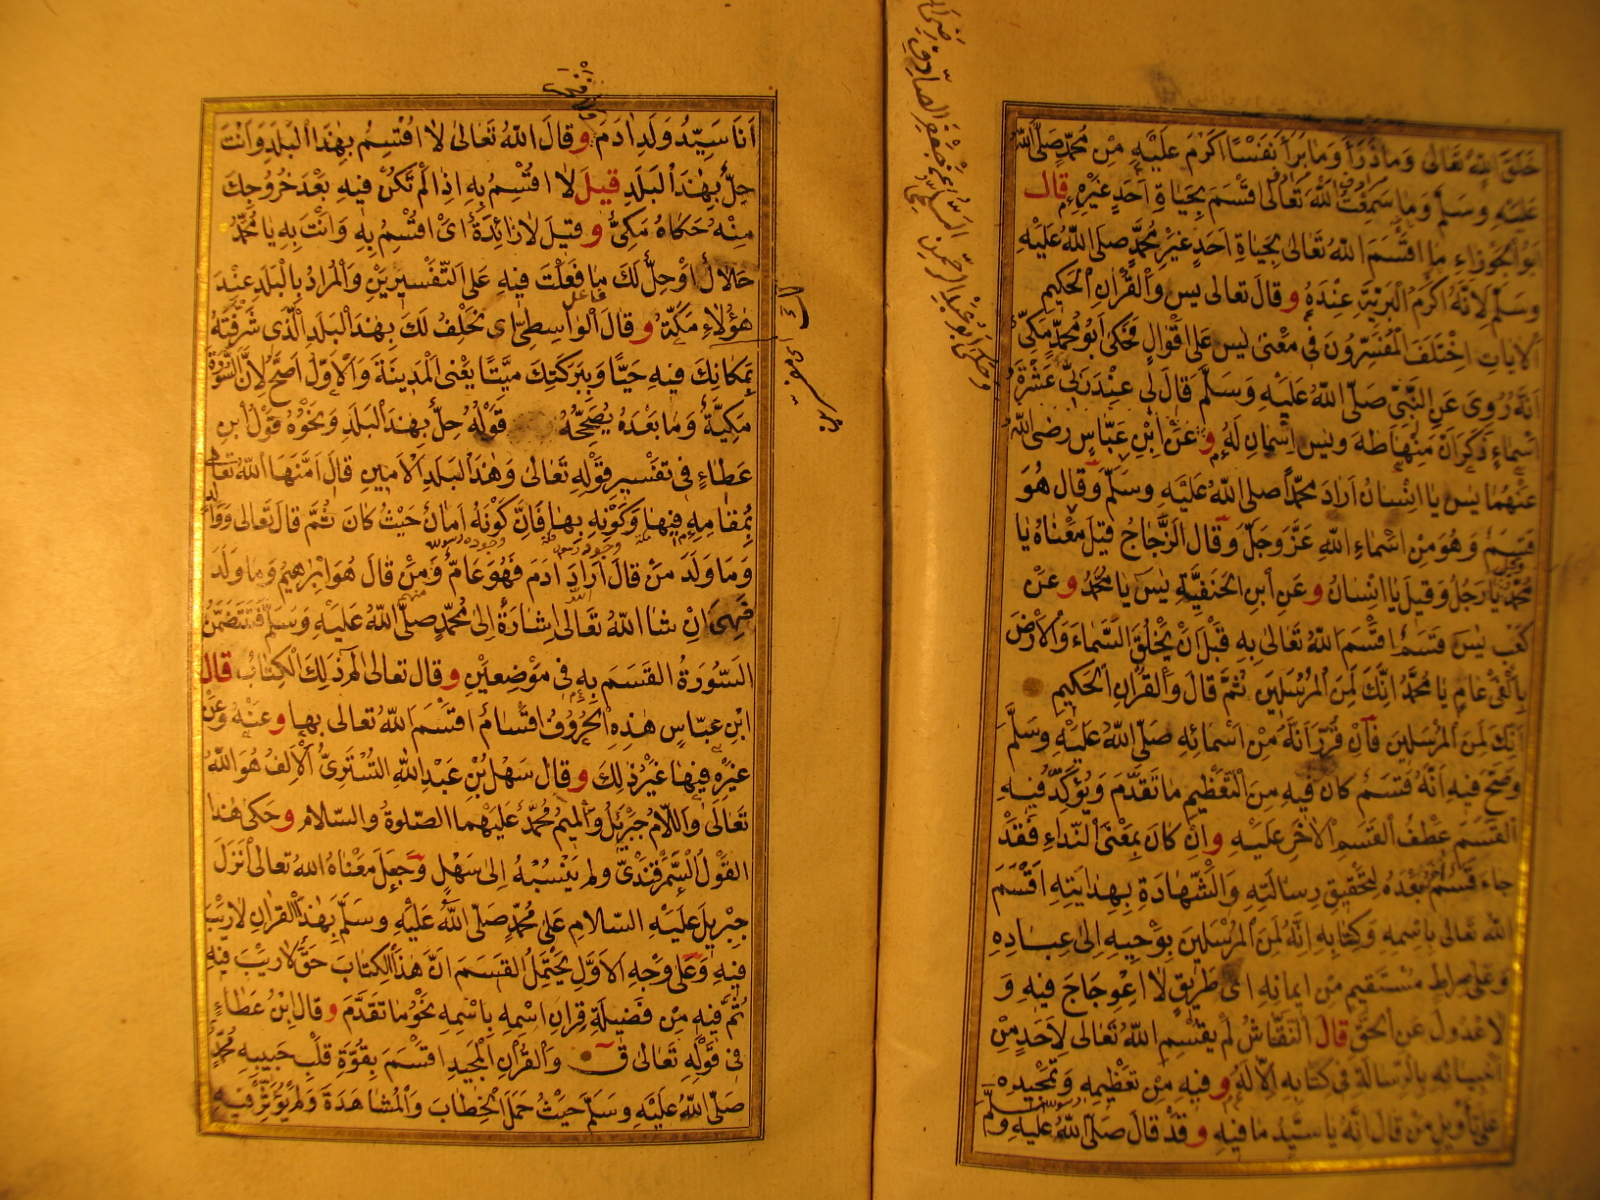 خَلَقَ اللّٰهُ تَعَالٰى وَمَا ذَرَأَ وَمَا بَرَأَ نَفْسًا اَكْرَمَ عَلَيْهِ مِنْ مُحَمَّدٍ صَلَّى اللّٰهُ
عَلَيْهِ وَسَلَّمَ وَمَا سَمِعْتُ اللّٰهَ تَعَالٰى اَقْسَمَ بِحَيَاةِ اَحَدٍ غَيْرِهِ قال
اَبُو الْجَوْزَاءِ مَا اَقْسَمَ اللّٰهُ تَعَالٰى بِحَيَاةِ اَحَدٍ غَيْرِ مُحَمَّدٍ صَلَى اللّٰهُ عَلَيْهِ
وَسَلَّمَ لِاَنَّهُ اَكْرَمُ الْبَرِيَّةِ عِنْدَهُ و قال تعالى يس وَالْقُرْاٰنِ الْحَكِيمِ
الاٰيَاتِ اِخْتَلَفَ الْمُفَسِّرُونَ فى مَعْنٰى يس عَلٰى اَقْوَالٍ فَحَكٰى اَبُو مُحَمَّدٍ مَكِّىٌّ
اَنَّهُ رُوِىَ عَنِ النَّبِىِّ صَلّى اللّٰهُ عَلَيْهِ وَسَلَّمَ قَالَ لِى عِنْدَ رَبِّى عَشْرَةُ
اَسْمَاءٍ ذَكَرَ اَنَّ مِنْهَا طه وَيس اِسْمَانِ لَهُ و عَنْ اِبْنِ عَبَّاسٍ رضى اللّٰهُ
عَنْهُمَا يس يَا اِنْسَانُ اَرَادَ مُحَمَّدًا صلى اللّٰهُ عَلَيْهِ وَسَلَّمَ وَقال هُوَ
قَسَمٌ وَهُوَ مِنْ اَسْمَاءِ اللّٰهِ عَزَّ وَجَلَّ وَقال الزَّجَّاجُ قِيلَ مَعْنَاهُ يَا
مُحَمَّدُ وَقِيلَ يَا رَجُلُ وَقِيلَ يَا اِنْسَانُ و عَنِ اْبنِ الْحَنَفِيَّةِ يس يَا مُحَمَّدُ و عَنْ
كَعْبٍ يس قَسَمٌ اَقْسَمَ اللّٰهُ تَعَالٰى بِهِ قَبْلَ اَنْ يَخْلُقَ السَّمَاءَ وَالْاَرْضَ
بِاَلْفَىْ عَامٍ يَا مُحَمَّدُ اِنَّكَ لَمِنَ الْمُرْسَلِينَ ثُمَّ قَالَ وَالْقُرْاٰنِ الْحَكِيمِ
اِنَّكَ لَمِنَ الْمُرْسَلِينَ فَاِنْ قُرِّرَ اَنَّهُ مِنْ اَسْمَائِهِ صَلّى اللّٰهُ عَلَيْهِ وَسَلَّمَ
وَصَحَّ فِيهِ اَنَّهُ قَسَمٌ كان فِيهِ مِنَ التَّعْظِيمِ مَا تَقَدَّمَ وَيُؤَكِّدُ فِيهِ
الْقَسَمَ عَطْفُ الْقَسَمِ الْاٰخَرِ عَلَيْهِ و اِنْ كَانَ بِمَعْنَى النِّدَاءِ فَقَدْ
جاءَ قَسَمٌ اٰخَرُ بَعْدَهُ لِتَحْقِيقِ رِسَالَتِهِ وَالشَّهَادَةِ بِهِدَايَتِهِ اَقْسَمَ
اللّٰهُ تعَالٰى بِاسْمِهِ وَكِتَابِهِ اِنَّهُ لَمِنَ الْمُرْسَلِينَ بِوَحْيِهِ اِلٰى عِبَادِهِ
وَعَلٰى صِرَاطٍ مُسْتَقِيمٍ مِنْ اِيمَانِهِ اَىْ طَرِيقٍ لَا اعْوِجَاجَ فِيهِ وَ
لَا عُدُولَ عَنِ الْحَقِّ قالَ النَّقَّاشُ لَمْ يُقْسِمِ اللّٰهُ تَعَالٰى لِاَحَدٍ مِنْ
اَنْبِيَائِهِ بِالرِّسَالَةِ فى كِتَابِهِ اِلَّا لَهُ و فِيهِ مِنْ تَعْظِيمِهِ وَتَمْجِيدِهِ
عَلٰى تَأْوِيلِ مَنْ قال اَنَّهُ يَا سَيِّدُ مَا فِيهِ و قَدْ قالَ صَلّى اللّٰهُ عَلَيْهِ وَسَلَّمَ
وحكى ابو عبد الرحمن السلمى عن جعفر الصادق رضى الله
اَنَا سَيِّدُ وَلَدِ اٰدَمَ و قالَ اللّٰهُ تَعَالٰى لَا اُقْسِمُ بِهٰذَا الْبَلَدِ وَاَنْتَ
حِلٌّ بِهٰذَا الْبَلَدِ قِيلَ لَا اُقْسِمُ بِهِ اِذَا لَمْ تَكُنْ فِيهِ بَعْدَ خُرُوجِكَ
مِنْهُ حَكَاهُ مَكِّىٌّ و قيلَ لَا زَائِدَةٌ اَىْ اُقْسِمُ بِهِ وَاَنْتَ بِهِ يَا مُحَمَّدُ
حَلَالٌ اَوْ حِلٌّ لَكَ مَا فَعَلْتَ فِيهِ عَلَى التَّفْسِيرَيْنِ وَالْمُرَادُ بِالْبَلَدِ عِنْدَ
هٰؤُلَاءِ مَكَّةُ و قالَ الْوَاسِطِىُّ اى نَحْلِفُ لَكَ بِهٰذَا الْبَلَدِ الَّذى شَرَّفْتَهُ
بِمَكَانِكَ فِيهِ حَيًّا وَبِبَرَكَتِكَ مَيِّتًا يَعْنِى الْمَدِينَةَ وَالْاَوَّلُ اَصَحُّ لِاَنَّ السُّورَةَ
مَكِّيَّةٌ وَمَا بَعْدَهُ يُصَحِّحُهُ قَوْلُهُ حِلٌّ بِهٰذَا الْبَلَدِ وَنَحْوُهُ قَوْلُ ابْنِ
عَطَاءٍ فى تَفْسِيرِ قَوْلِهِ تَعَالٰى وَهٰذَا الْبَلَدِ الْاَمِينِ قَالَ اَمَّنَهَا اللّٰهُ تعَالٰى
بِمُقَامِهِ فِيهَا وَكَوْنِهِ بِهَا فَاِنَّ كَوْنَهُ اَمَانٌ حَيْثُ كَانَ ثُمَّ قالَ تَعَالٰى وَوَالِدٍ
وَمَا وَلَدَ مَنْ قَالَ اَرَادَ اٰدَمَ فَهُوَ عَامٌّ وَمَنْ قَالَ هُوَ اِبْرَاهِيمُ وَمَا وَلَدَ
فَهِىَ اِنْ شَاَ اللّٰهُ تَعَالٰى اِشَارَةٌ اِلٰى مُحَمَّدٍ صَلَّى اللّٰهُ عَلَيْهِ وَسَلَّمَ فَتَتَضَمَّنُ
السُّورَةُ الْقَسَمَ بِهِ فى مَوْضِعَيْنِ و قال تعالى الٓمٓ ذٰلِكَ الْكِتَابُ قال
ابْنِ عَبَّاسٍ هٰذِهِ الْحُرُوفُ اَقْسَامٌ اَقْسَمَ اللّٰهُ تعَالٰى بِهَا و عَنْهُ وَعَنْ
غَيْرِهِ فِيهَا غَيْرُ ذٰلِكَ و قال سَهْلُ بْنُ عَبْدِ اللّٰهِ التُّسْتَرِىُّ الْاَلِفُ هُوَ اللّٰهُ
تَعَالٰى وَاللَّامُ جِبْرِيلُ وَالْمِيمُ مُحَمَّدٌ عَلَيْهِمَا الصَّلٰوةُ وَالسَّلَامُ و حَكٰى هٰذَا
الْقَوْلَ السَّمَرْقَنْدِىُّ وَلَمْ يَنْسُبْهُ اِلٰى سَهْلٍ وَجَعَلَ مَعْنَاهُ اللّٰهُ تعَالٰى اَنْزَلَ
جِبْرِيلَ عَلَيْهِ السَّلَام عَلٰى مُحَمَّدٍ صَلَّى اللّٰهُ عَلَيْهِ وَسَلَّمَ بِهٰذَا الْقُرْاٰنِ لَا رَيْبَ
فِيهِ وَعَلَى وَجْهِ الْاَوَّلِ يَحْتَمِلُ الْقَسَمَ اَنَّ هٰذَا الْكِتَابَ حَقٌّ لَا رَيْبَ فِيهِ
ثُمَّ فِيهِ مِنْ فَضِيلَةِ قِرَانِ اسْمِهِ بِاسْمِهِ نَحْوُ مَا تَقَدَّمَ و قال ابْنُ عَطَاءٍ
فى قَوْلِهِ تَعَالٰى ق وَالْقُرْاٰنِ الْمَجِيدِ اَقْسَمَ بِقُوَّةِ قَلْبِ حَبِيبِهِ مُحَمَّدٍ
صَلّى اللّٰهُ عَلَيْهِ وَسَلَّمَ حَيْثُ حَمَلَ الْخِطَابَ وَالْمُشَاهَدَةَ وَلَمْ يُؤَثِّرْ فِيهِ